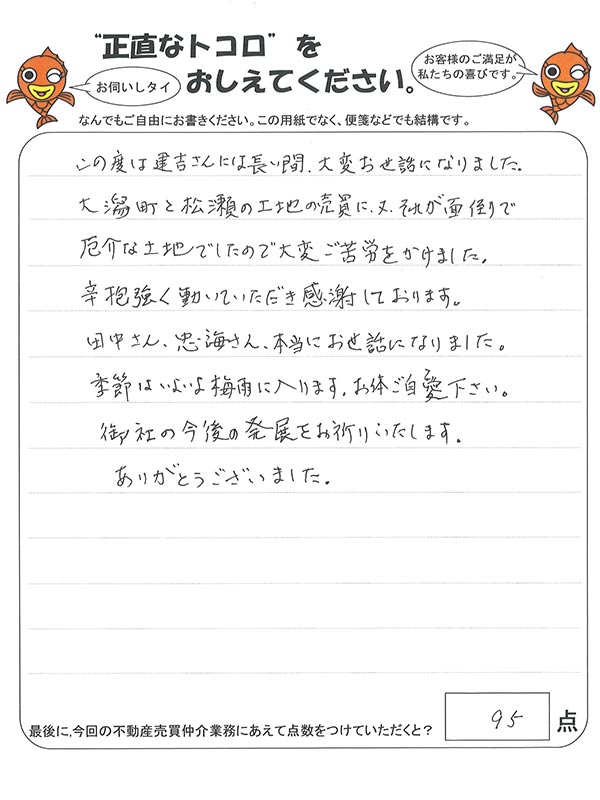 "正直なトコロ"を
おしえてください。
お伺いしタイ
お客様のご満足が
私たちの喜びです。
なんでもご自由にお書きください。この用紙でなく、便箋などでも結構です。
この度は運吉さんには長い間、大変お世話になりました。
大潟町と松瀬の土地の売買に、又、それが面倒で
厄介な土地でしたので大変ご苦労をかけました。
辛抱強く動いていただき感謝しております。
田中さん、忠海さん、本当にお世話になりました。
季節はいよいよ梅雨に入ります。お体ご自愛下さい。
御社の今後の発展をお祈りいたします。
ありがとうございました。
最後に、今回の不動産売買仲介業務にあえて点数をつけていただくと？
95 点